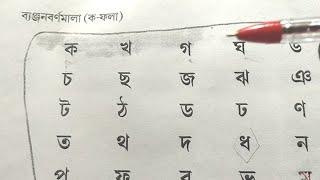 ব্যঞ্জনবর্ণমালা (ক-ফলা)
ক খ গ ঘ ঙ
চ ছ জ ঝ ঞ
ট ঠ ড ঢ ণ
ত থ দ ধ ন
প ফ ব ভ ম